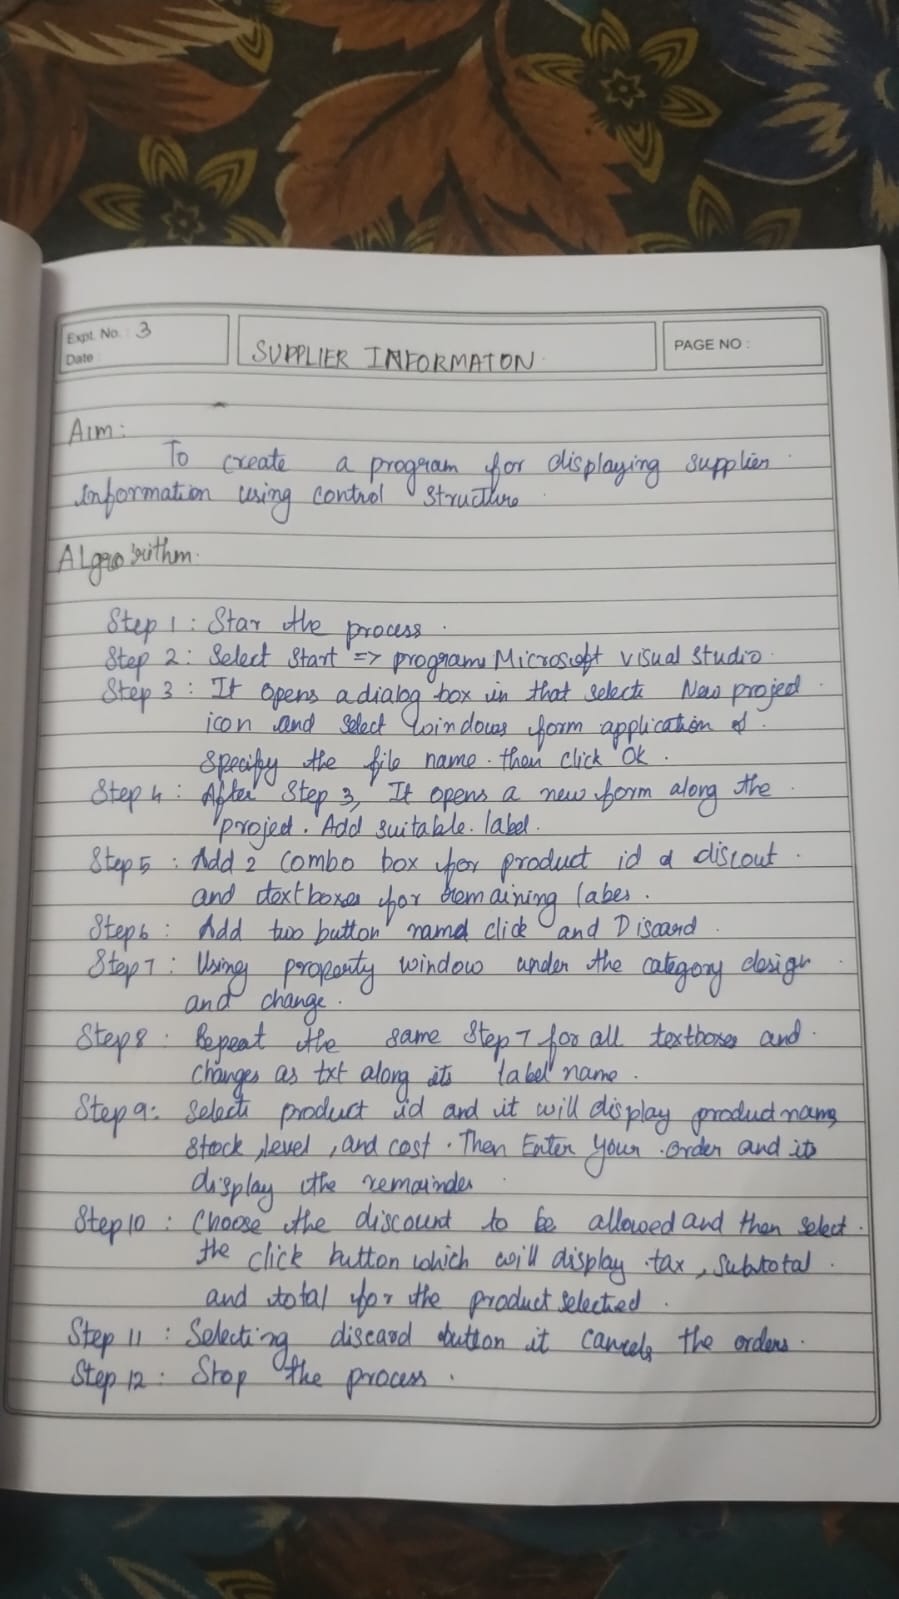 Expt. No. : 3
Date :
SUPPLIER INFORMATON
PAGE NO :
Aim:
To create a program for displaying supplier
Information using control structure
Algorithm.
Step 1 : Star the process
Step 2 : Select Start => programs Microsoft visual Studio
Step 3 : It opens a dialog box in that select New project
icon and select windows form application &
specify the file name. then click Ok.
Step 4 : After Step 3, It opens a new form along the
project. Add suitable label.
Step 5 : Add 2 combo box for product id & discout
and textboxes for remaining labes.
Step 6 : Add two button named click and Discard
Step 7 : Using property window under the category design
and change.
Step 8 : Repeat the same Step 7 for all textboxes and
changes as txt along its label name.
Step 9: Select product id and it will display product name,
Stock level, and cost. Then Enter your order and its
display the remainder
Step 10 : Choose the discount to be allowed and then select
the click button which will display tax, Subtotal
and total for the product selected
Step 11 : Selecting discard button it cancels the orders.
Step 12 : Stop the process.